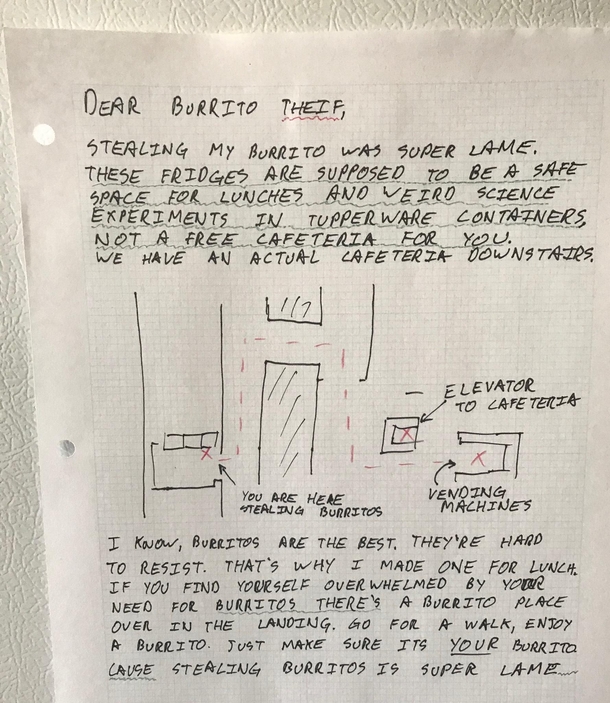 DEAR BURRITO THEIF,
STEALING MY BURRITO WAS SUPER LAME.
THESE FRIDGES ARE SUPPOSED TO BE A SAFE
SPACE FOR LUNCHES AND WEIRD SCIENCE
EXPERIMENTS IN TUPPERWARE CONTAINERS,
NOT A FREE CAFETERIA FOR YOU.
WE HAVE AN ACTUAL CAFETERIA DOWNSTAIRS.
ELEVATOR
TO CAFETERIA
YOU ARE HERE
STEALING BURRITOS
VENDING
MACHINES
I KNOW, BURRITOS ARE THE BEST. THEY'RE HARD
TO RESIST. THAT'S WHY I MADE ONE FOR LUNCH.
IF YOU FIND YOURSELF OVERWHELMED BY YOUR
NEED FOR BURRITOS THERE'S A BURRITO PLACE
OVER IN THE LANDING. GO FOR A WALK, ENJOY
A BURRITO. JUST MAKE SURE ITS YOUR BURRITO
CAUSE STEALING BURRITOS IS SUPER LAME.